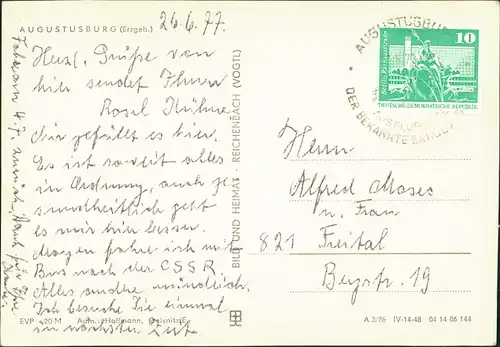 AUGUSTUSBURG (Erzgeb.)
26.6.77.
Herzl. Grüße von
hier sendet Ihnen
Rosel Kühne
Mir gefällt es hier.
Es ist soweit alles
in Ordnung, auch ge
sundheitlich geht
es mir hier besser.
Morgen fahre ich mit
Bus nach der ČSSR.
Alles andre mündlich.
Ich besuche Sie einmal
in nächster Zeit
EVP -20 M Aufn.: Hoffmann, Oelsnitz/E.
BILD UND HEIMAT · REICHENBACH (VOGTL)
AUGUSTUSBURG
DER BEKANNTE
10
DEUTSCHE DEMOKRATISCHE REPUBLIK
Herrn
Alfred Moses
u. Frau
821 Freital
Bergstr. 19
A 3/76 IV-14-48 04 14 06 144